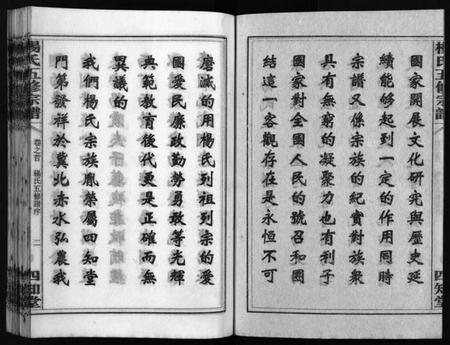 楊氏五修宗譜
國家開展文化研究與歷史延
續能夠起到一定的作用同時
宗譜又係宗族的紀實對族衆
具有無窮的凝聚力也有利子
國家對全國人民的號召和團
結這一客觀存在是永恒不可
四知堂
磨滅的用楊氏列祖列宗的愛
國愛民廉政勤勞勇敢等光輝
典範教育後代更是正確而無
異議的
我們楊氏宗族胤禁屬四知堂
門第發祥於冀北赤水弘農我
楊氏五修宗譜
卷之首
楊氏五修譜序
二
四知堂